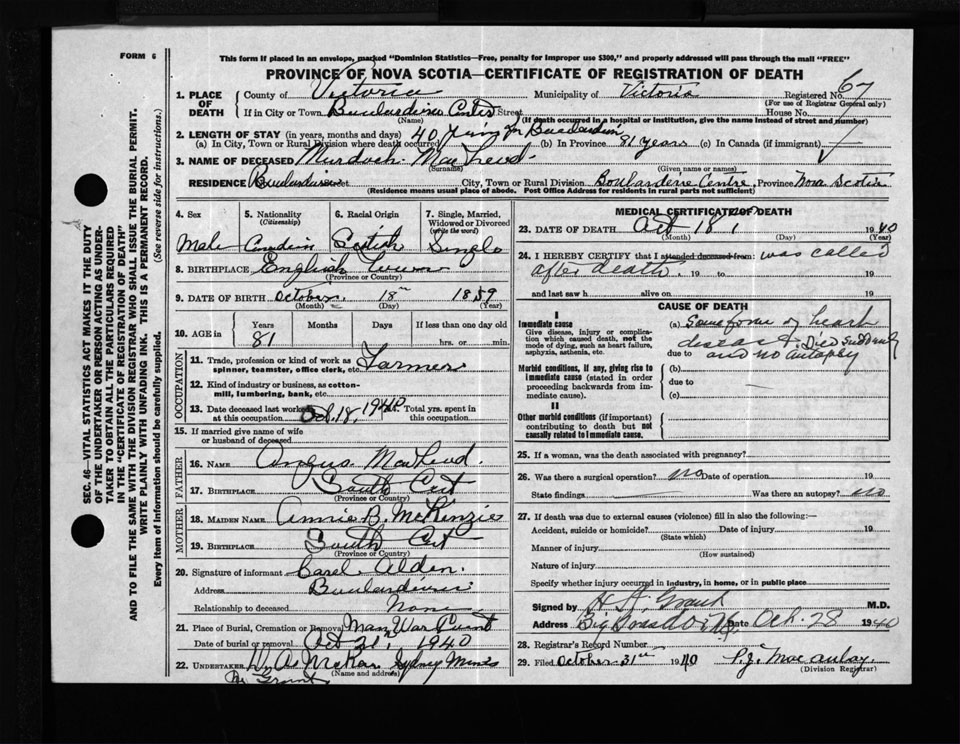 FORM 6
This form if placed in an envelope, marked "Dominion Statistics—Free, penalty for improper use $300," and properly addressed will pass through the mail "FREE"
PROVINCE OF NOVA SCOTIA—CERTIFICATE OF REGISTRATION OF DEATH
67
1. PLACE OF DEATH
County of Victoria Municipality of Victoria Registered No.
(For use of Registrar General only)
If in City or Town Street House No.
(Name) (If death occurred in a hospital or institution, give the name instead of street and number)
2. LENGTH OF STAY (in years, months and days)
(a) In City, Town or Rural Division where death occurred 40 (b) In Province 81 years (c) In Canada (if immigrant)
3. NAME OF DECEASED Murdoch MacLeod
(Surname) (Given name or names)
RESIDENCE Street City, Town or Rural Division Boularderie Centre, Province Nova Scotia
(Residence means usual place of abode. Post Office Address for residents in rural parts not sufficient)
4. Sex
Male
5. Nationality
(Citizenship)
6. Racial Origin
Scotish
7. Single, Married, Widowed or Divorced
(write the word)
Single
8. BIRTHPLACE English Town
(Province or Country)
9. DATE OF BIRTH October 18th 1859
(Month) (Day) (Year)
10. AGE in
Years
81
Months
Days
If less than one day old
hrs. or min.
OCCUPATION
11. Trade, profession or kind of work as spinner, teamster, office clerk, etc. Farmer
12. Kind of industry or business, as cotton-mill, lumbering, bank, etc.
13. Date deceased last worked at this occupation Oct. 18, 1940. Total yrs. spent in this occupation
15. If married give name of wife or husband of deceased
FATHER
16. NAME Angus MacLeod.
17. BIRTHPLACE South
(Province or Country)
MOTHER
18. MAIDEN NAME Annie B. McKenzie
19. BIRTHPLACE South
(Province or Country)
20. Signature of informant Alden.
Address
Relationship to deceased None
21. Place of Burial, Cremation or Removal Man War Point
Date of burial or removal Oct 21st 1940
22. UNDERTAKER Sydney Mines
(Name and address)
MEDICAL CERTIFICATE OF DEATH
23. DATE OF DEATH Oct 18, 1940
(Month) (Day) (Year)
24. I HEREBY CERTIFY that I attended deceased from: was called
after death 19 to 19
and last saw h alive on 19
CAUSE OF DEATH
I
Immediate cause
Give disease, injury or complication which caused death, not the mode of dying, such as heart failure, asphyxia, asthenia, etc.
(a) Some form of heart
disease. Died suddenly
due to and no autopsy
Morbid conditions, if any, giving rise to immediate cause (stated in order proceeding backwards from immediate cause).
(b)
due to
(c)
II
Other morbid conditions (if important) contributing to death but not causally related to immediate cause.
25. If a woman, was the death associated with pregnancy?
26. Was there a surgical operation? no Date of operation 19
State findings Was there an autopsy? no
27. If death was due to external causes (violence) fill in also the following:—
Accident, suicide or homicide? Date of injury 19
(State which)
Manner of injury
(How sustained)
Nature of injury
Specify whether injury occurred in industry, in home, or in public place
Signed by Grant M.D.
Address Date Oct. 28 1940
28. Registrar's Record Number
29. Filed October 31st 1940 P.J. MacAulay.
(Division Registrar)
SEC. 46—VITAL STATISTICS ACT MAKES IT THE DUTY
OF THE UNDERTAKER OR PERSON ACTING AS UNDER-
TAKER TO OBTAIN ALL THE PARTICULARS REQUIRED
IN THE "CERTIFICATE OF REGISTRATION OF DEATH"
AND TO FILE THE SAME WITH THE DIVISION REGISTRAR WHO SHALL ISSUE THE BURIAL PERMIT.
WRITE PLAINLY WITH UNFADING INK. THIS IS A PERMANENT RECORD.
Every item of information should be carefully supplied. (See reverse side for instructions.)